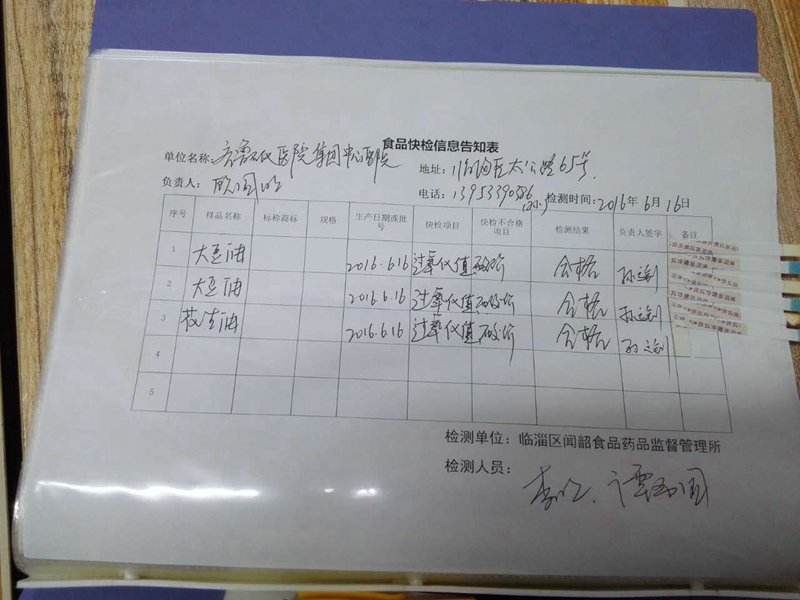 食品快检信息告知表
单位名称：齐鲁石化医院集团中心医院 地址：临淄区太公路65号
负责人： 电话：13953390586 检测时间：2016年6月16日
序号 样品名称 标称商标 规格 生产日期或批号 快检项目 快检不合格项目 检测结果 负责人签字 备注
1 大豆油 2016.6.16 过氧化值 酸价 合格
2 大豆油 2016.6.16 过氧化值 酸价 合格
3 花生油 2016.6.16 过氧化值 酸价 合格
4
5
检测单位：临淄区闻韶食品药品监督管理所
检测人员：